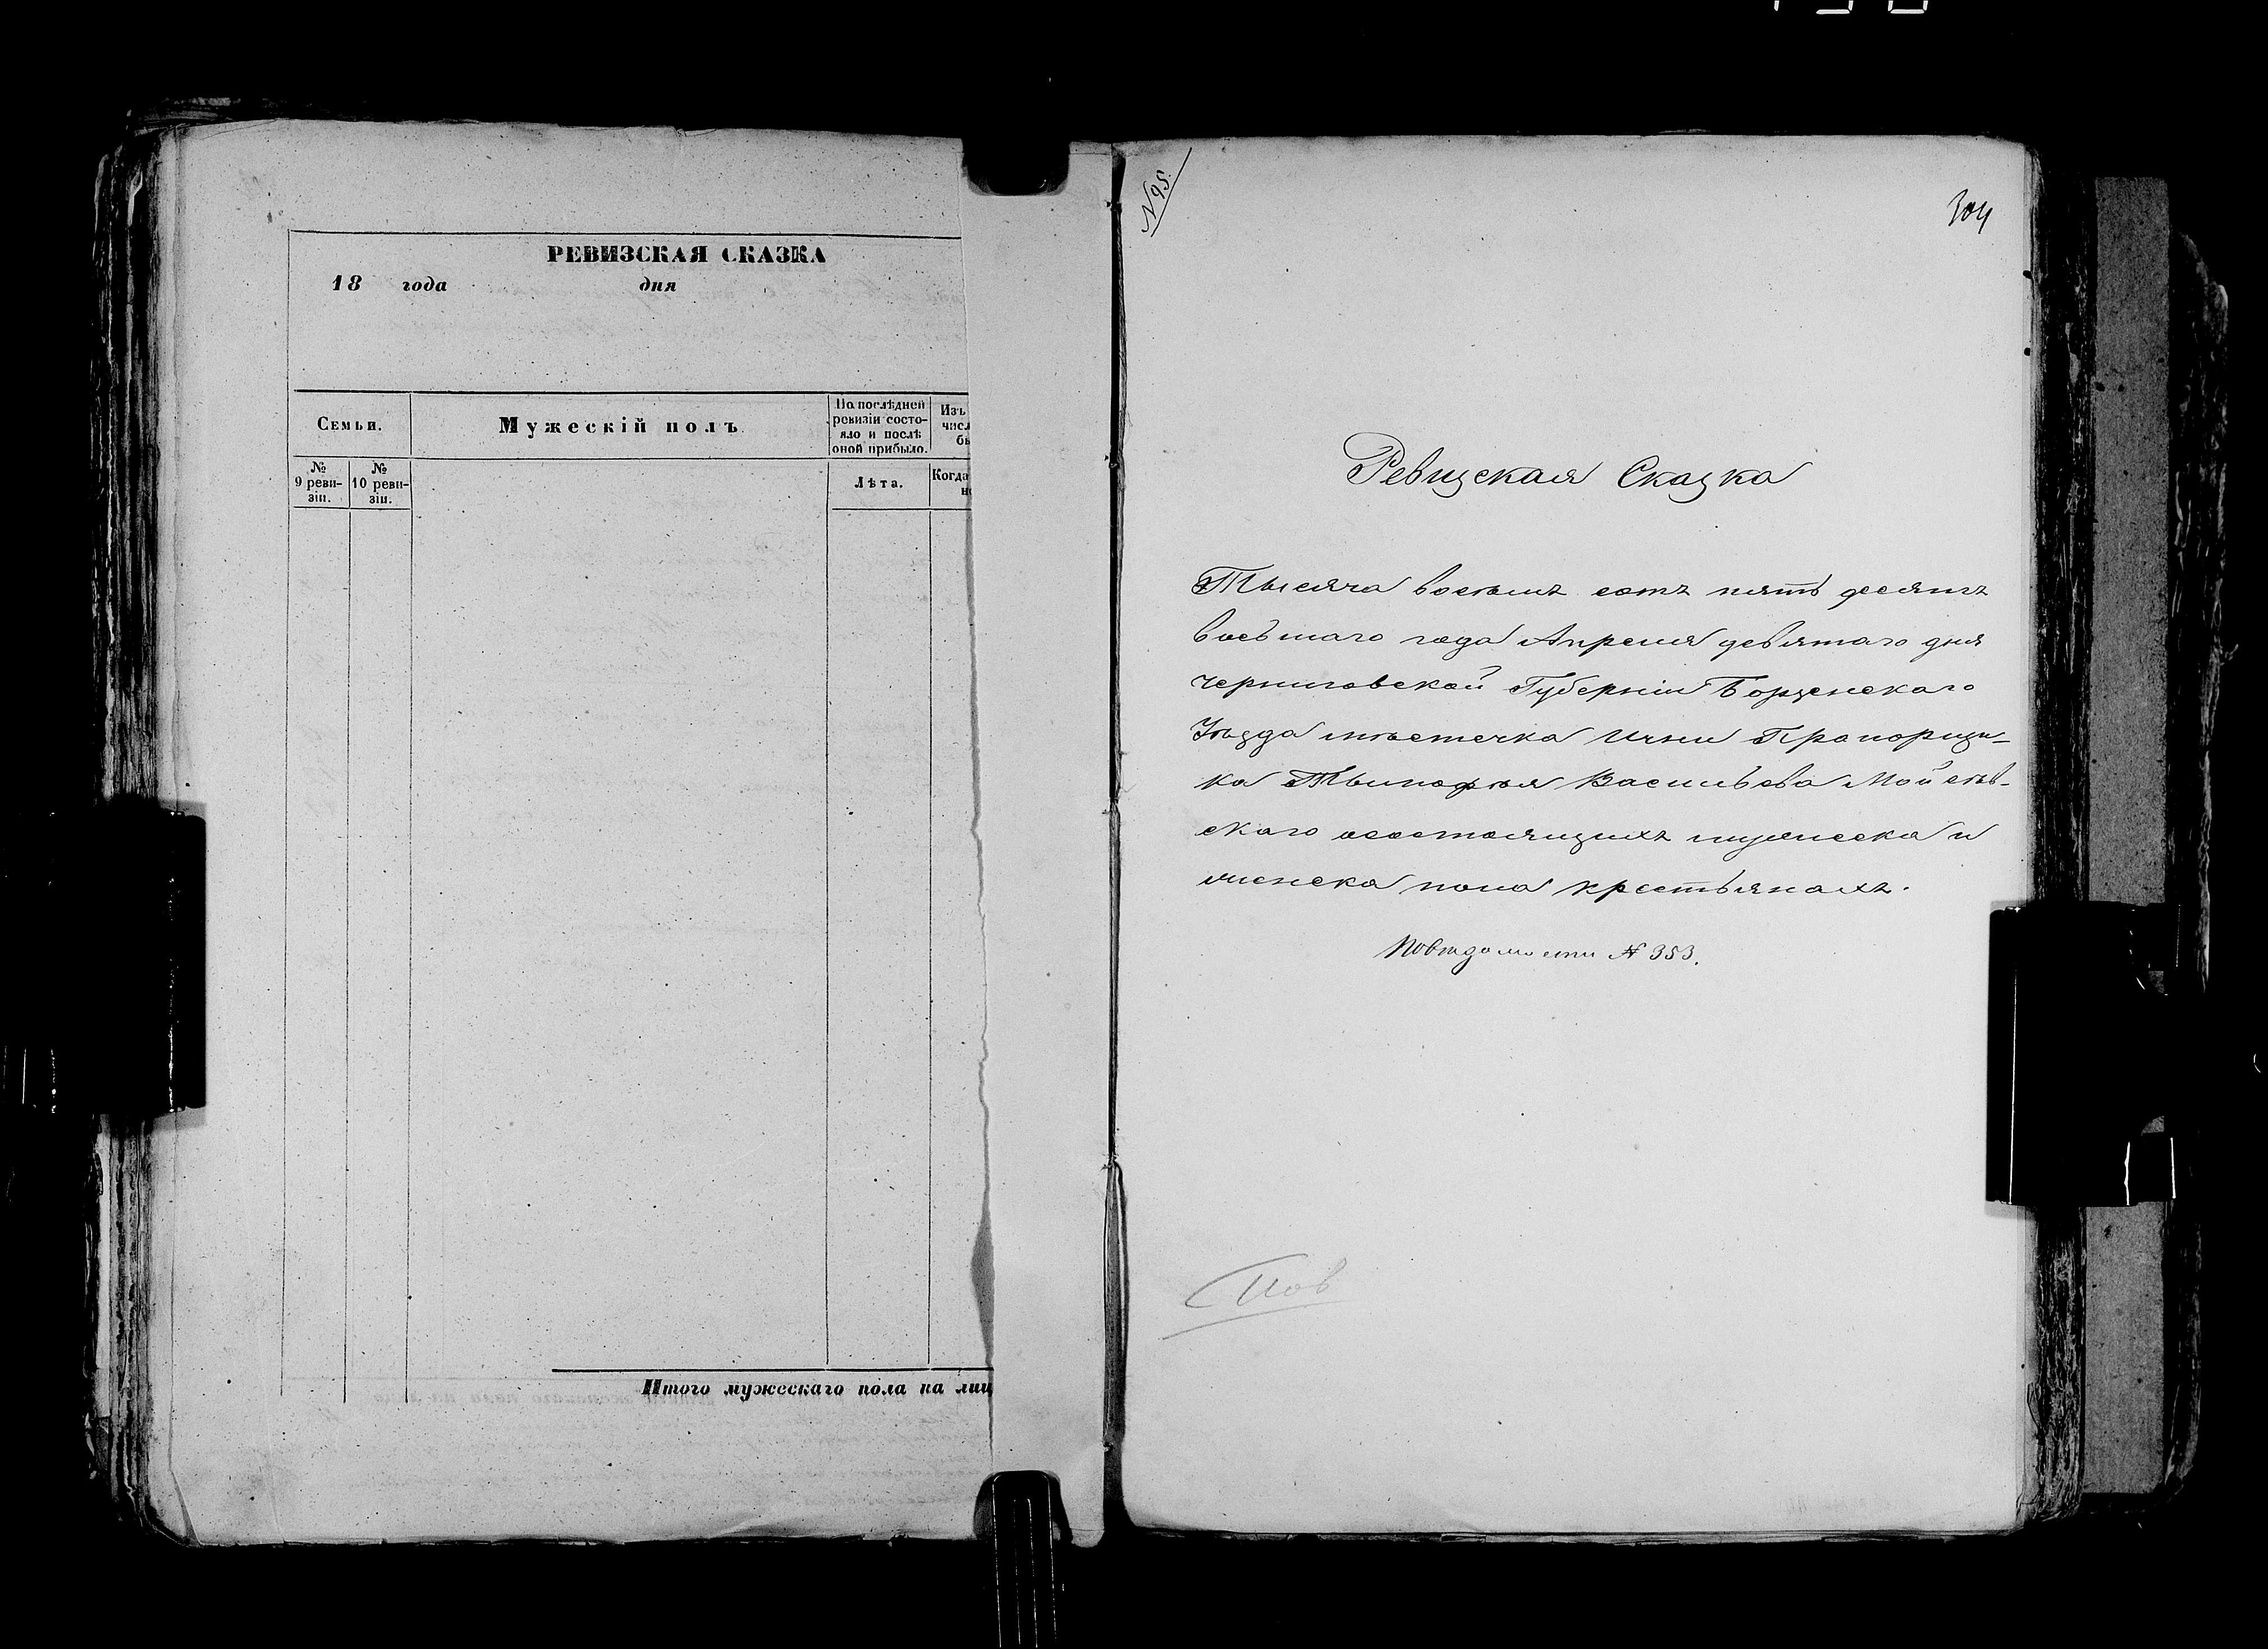 РЕВИЗСКАЯ СКАЗКА
18 года дня
Семьи.
Мужескій полъ
По послѣдней
ревизіи состо-
яло и послѣ
оной прибыло.
Изъ
числ
бы
№
9 реви-
зіи.
№
10 реви-
зіи.
Лѣта.
Когда
Итого мужескаго пола на лиц
N 95.
304
Ревизская Сказка
Тысяча восемъ сотъ пять десятъ
восьмаго года Апреля девятаго дня
Черниговской Губерніи Борзенскаго
Уѣзда мѣстечка Ични Прапорщи-
ка Тимофѣя Васильева Мойсѣв-
скаго осостоящихъ мужеска и
женска пола крестьянахъ.
Повѣдомости № 353.